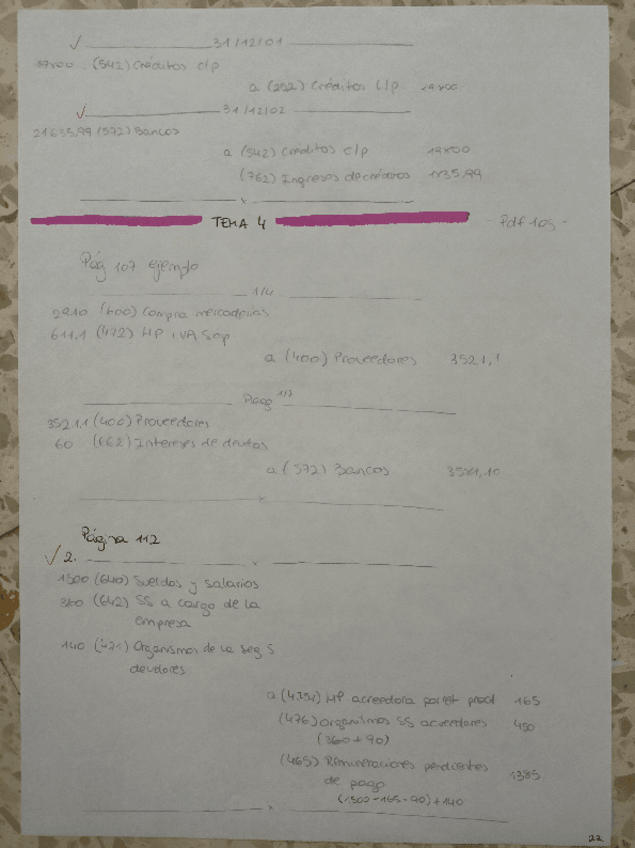 ✓ 31/12/01
(542) Créditos c/p
a (252) Créditos l/p 19x00
✓ 31/12/02
21635,99 (572) Bancos
a (542) Créditos c/p 19x00
(762) Ingresos de créditos
x
TEMA 4 - Pdf 105 -
Pág 107 Ejemplo
1/4
2910 (600) Compra mercaderías
611,1 (472) HP IVA Sop
a (400) Proveedores 3521,1
Pago 1/7
3521,1 (400) Proveedores
60 (662) Intereses de deudas
a (572) Bancos 3581,10
x
Página 112
✓ 2. x
1500 (640) Sueldos y salarios
360 (642) SS a cargo de la
empresa
140 (471) Organismos de la Seg S
deudores
a (4751) HP acreedora por ret pract 165
(476) Organismos SS acreedores 450
(360 + 90)
(465) Remuneraciones pendientes 1385
de pago
(1500 - 165 - 90) + 140
x
22